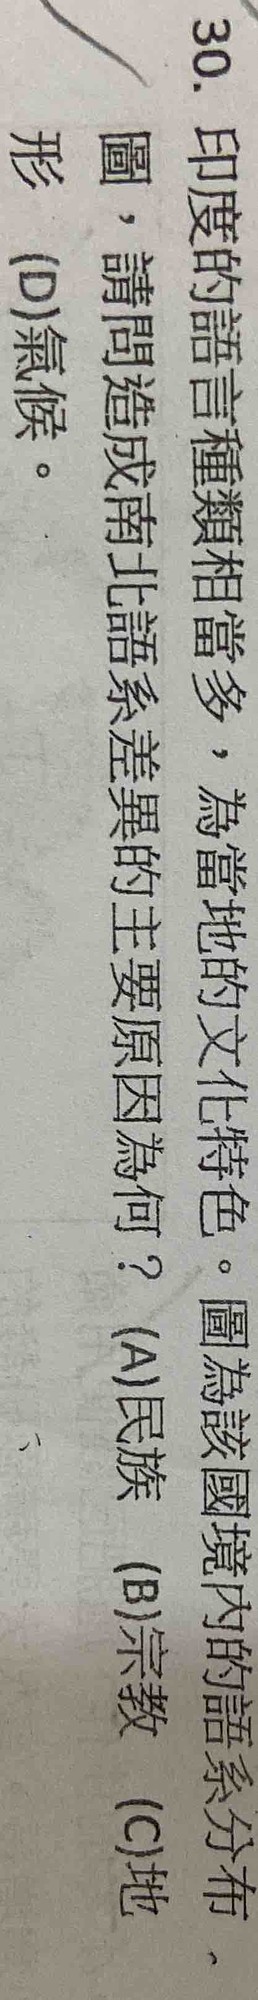 30. 印度的語言種類相當多，為當地的文化特色。圖為該國境內的語系分布
圖，請問造成南北語系差異的主要原因為何？ (A)民族 (B)宗教 (C)地
形 (D)氣候。